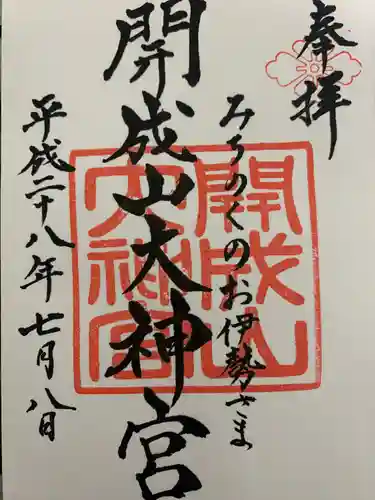 奉拝
みちのくのお伊勢さま
開成山大神宮
平成二十八年七月八日
開成山
大神宮